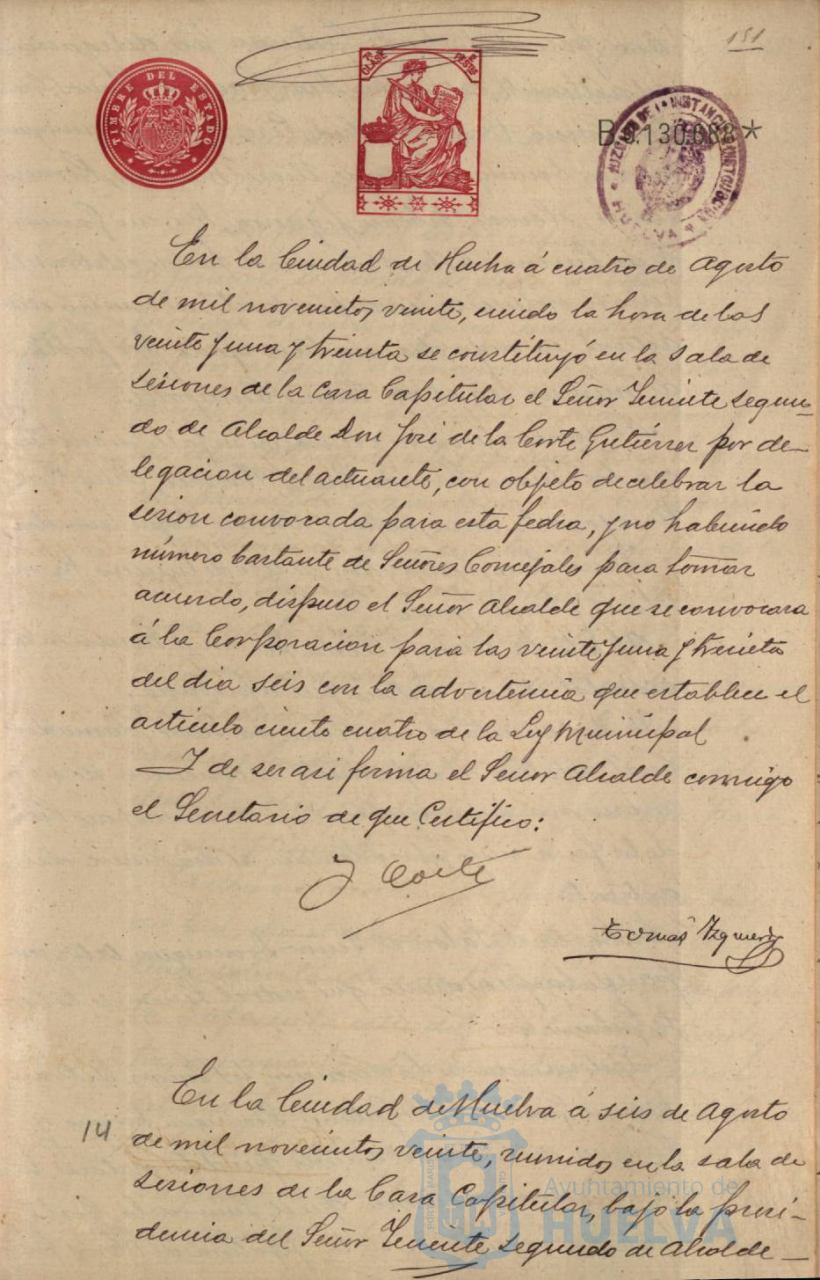 151
TIMBRE DEL ESTADO
CLASE
PESETAS
B.5.130.088*
JUZGADO DE 1ª INSTANCIA E INSTRUCCION
HUELVA
En la Ciudad de Huelva á cuatro de Agosto
de mil novecientos veinte, siendo la hora de las
veinte y una y treinta se constituyó en la Sala de
sesiones de la Casa Capitular el Señor Teniente segun-
do de Alcalde Don José de la Corte Gutiérrez por de-
legacion del actuante, con objeto de celebrar la
sesion convocada para esta fecha, y no habiendo
número bastante de Señores Concejales para tomar
acuerdo, dispuso el Señor Alcalde que se convocara
á la Corporacion para las veinte y una y treinta
del dia seis con la advertencia que establece el
articulo ciento cuatro de la Ley Municipal
Y de ser asi firma el Señor Alcalde conmigo
el Secretario de que Certifico:
J Corte
Tomás Izquierdo
14
En la Ciudad de Huelva á seis de Agosto
de mil novecientos veinte, reunidos en la sala de
sesiones de la Casa Capitular, bajo la presi-
dencia del Señor Teniente segundo de Alcalde
Ayuntamiento de
HUELVA